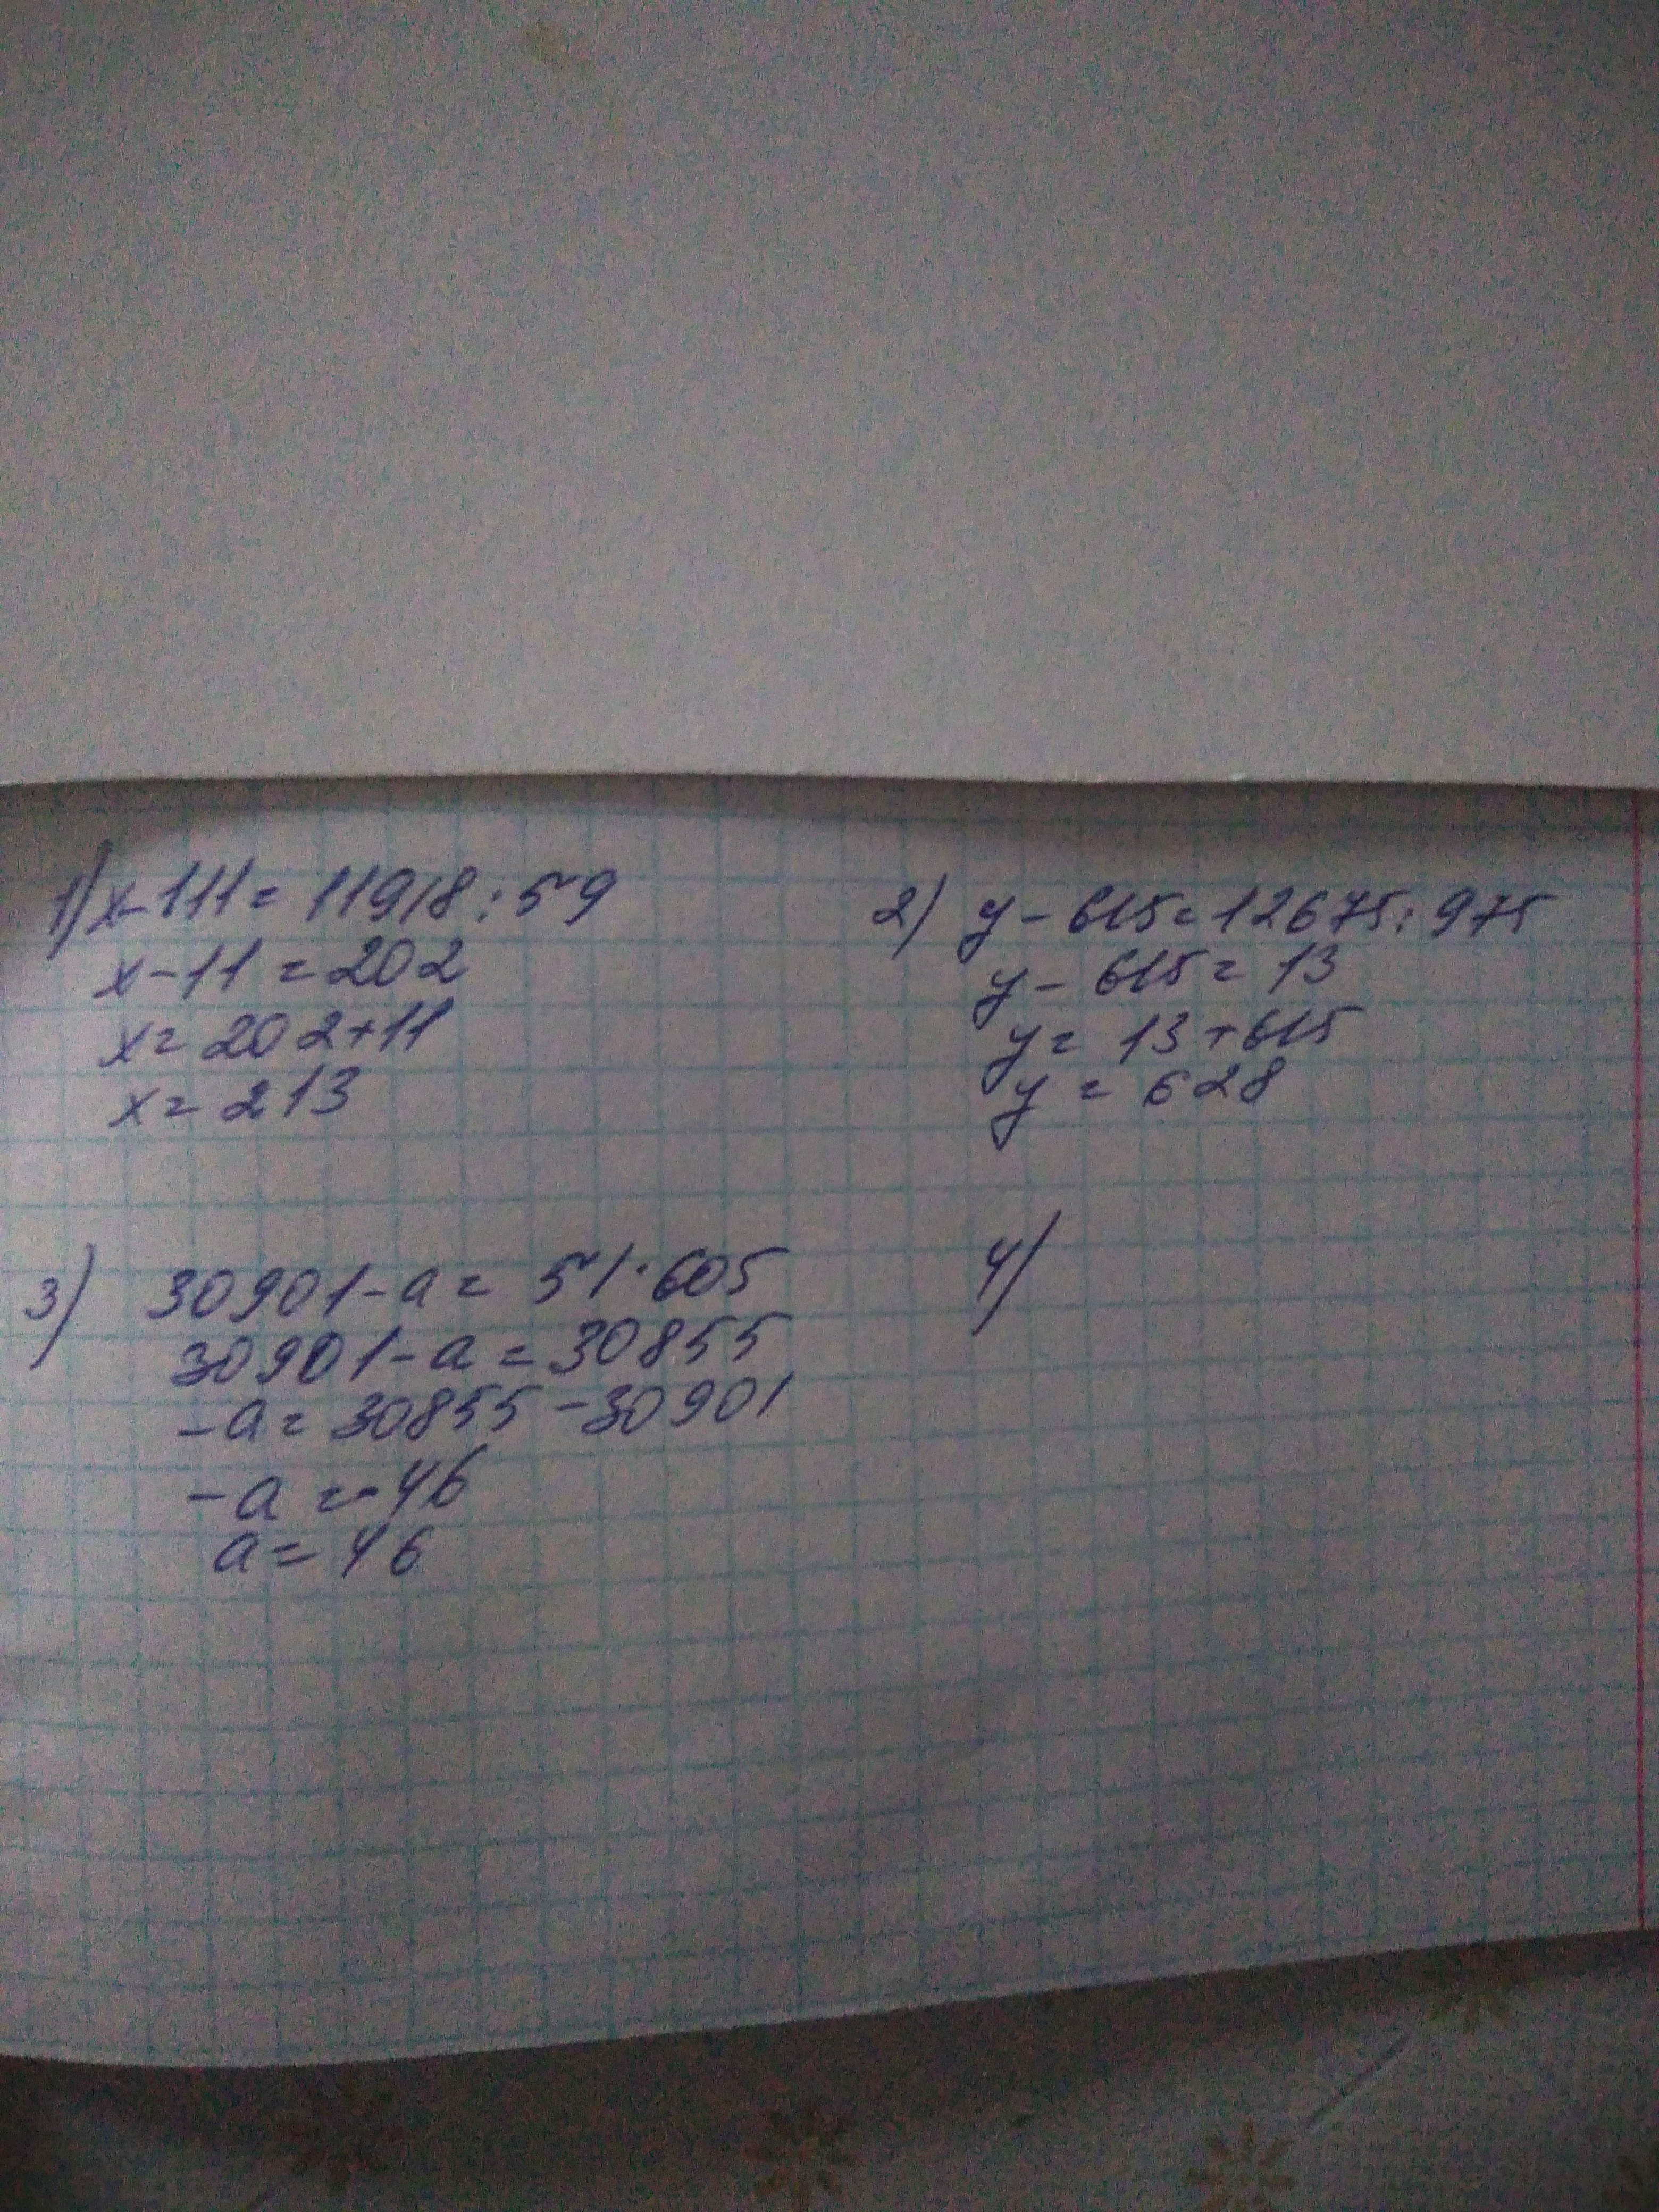 1) x-111=11918:59
x-11=202
x=202+11
x=213
2) y-615=12675:975
y-615=13
y=13+615
y=628
3) 30901-a=51·605
30901-a=30855
-a=30855-30901
-a=-46
a=46
4)